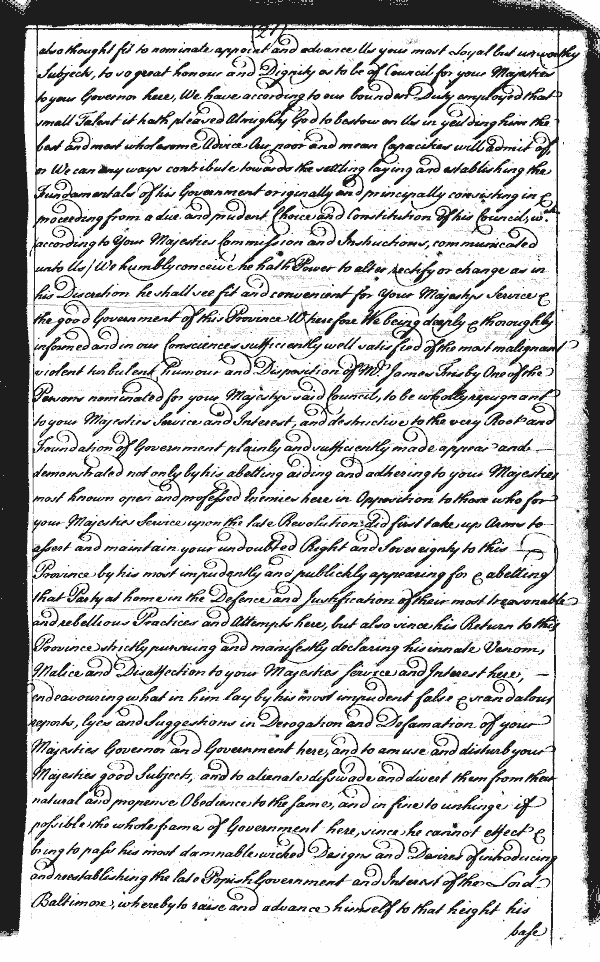 (27)
also thought fit to nominate appoint and advance Us your most Loyal but unworthy
Subject, to so great honour and Dignity as to be of Council for your Majesties
to your Governor here, We have according to our bounden Duty employed that
small Talent it hath pleased Almighty God to bestow on Us in yeilding him the
best and most wholesome Advice Our poor and mean Capacities will admit of
or We can any ways contribute towards the settling laying and establishing the
Fundamentals of his Government originally and principally consisting in &
proceeding from a due and prudent Choice and Constitution of his Council, wch
according to Your Majesties Commission and Instructions, communicated
unto Us/ We humbly conceive he hath Power to alter, rectify or change as in
his Discretion he shall see fit and convenient for Your Majestys Service &
the good Government of this Province Wherefore We being deeply & thoroughly
informed and in our Consciences sufficiently well satisfied of the most malignant
violent turbulent humour and Disposition of Mr. James Frisby One of the
Persons nominated for your Majestys said Council, to be wholly repugnant
to your Majesties Service and Interest, and destructive to the very Root and
Foundation of Government plainly and sufficiently made appear and
demonstrated not only by his abetting aiding and adhering to your Majesties
most known open and professed enemies here in Opposition to those who for
your Majesties Service upon the late Revolution did first take up Arms to
assert and maintain your undoubted Right and Sovereignty to this
Province by his most impudently and publickly appearing for & abetting
that Party at home in the Defence and Justification of their most treasonable
and rebellious Practices and Attempts here, but also since his Return to this
Province strictly pursuing and manifestly declaring his innate Venom,
Malice and Disaffection to your Majesties Service and Interest here,
endeavouring what in him lay by his most impudent false & scandalous
reports, lyes and Suggestions in Derogation and Defamation of your
Majesties Governor and Government here, and to amuse and disturb your
Majesties good Subjects, and to alienate disswade and divert them from their
natural and propense Obedience to the same, and in fine to unhinge if
possible the whole frame of Government here, since he cannot effect &
bring to pass his most damnable wicked Designs and Desires of introducing
and reestablishing the late Popish Government and Interest of the Lord
Baltimore, whereby to raise and advance himself to that height his
base